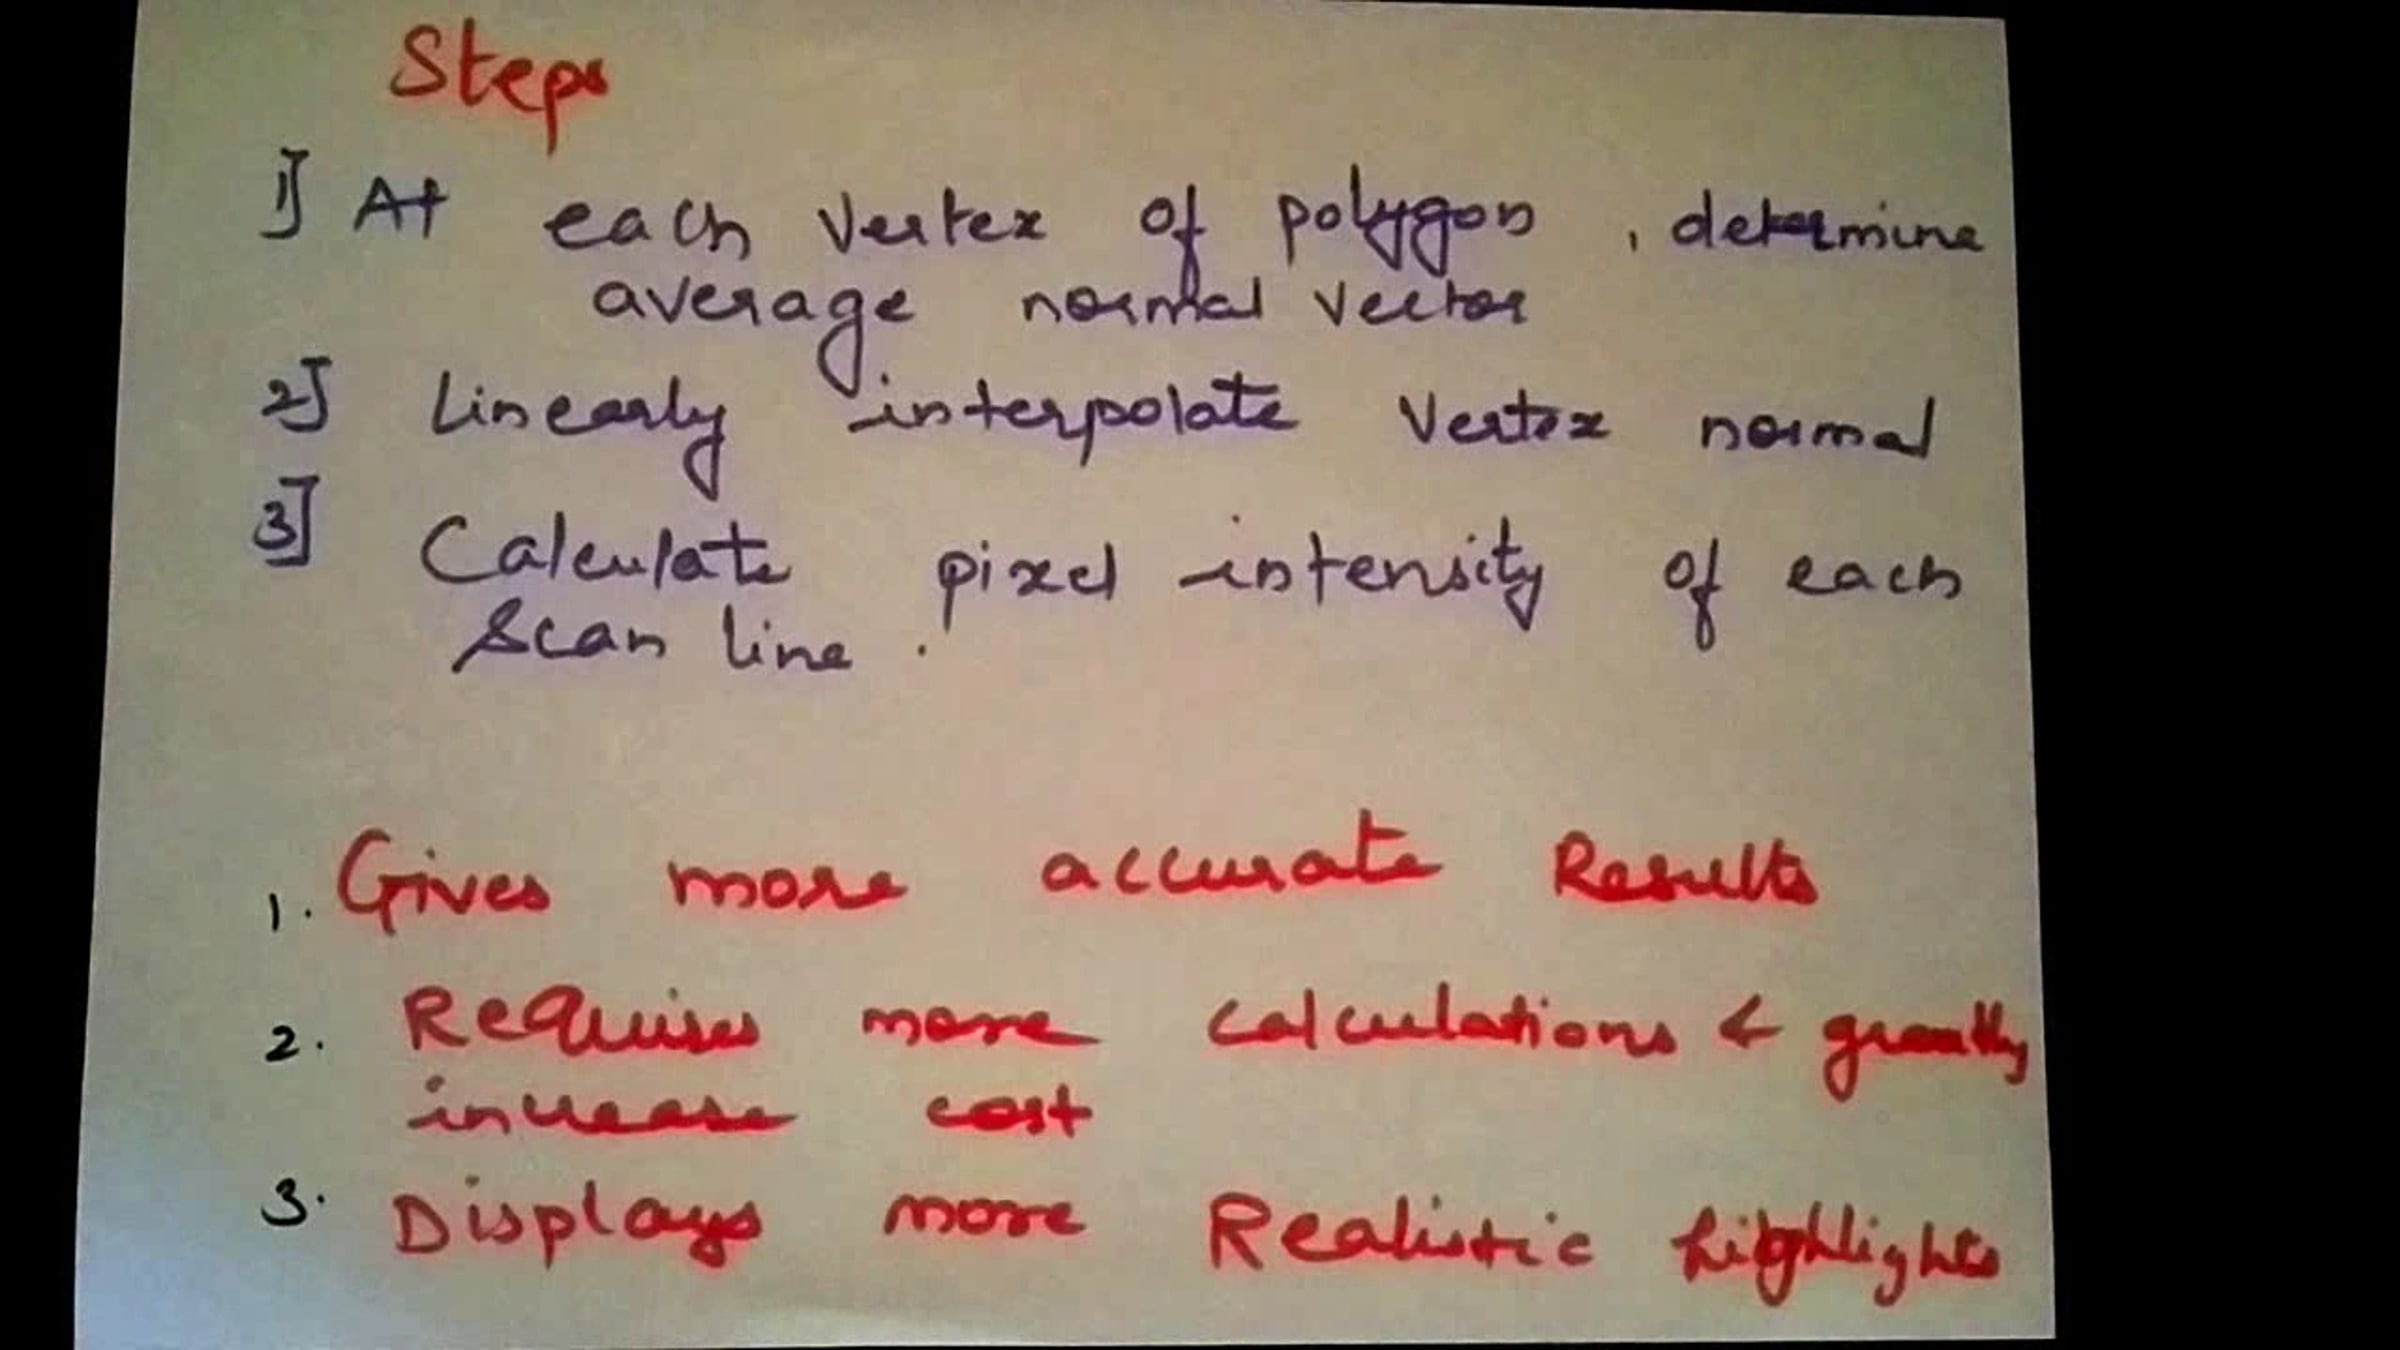 Steps
1] At each vertex of polygon, determine
average normal vector
2] Linearly interpolate vertex normal
3] Calculate pixel intensity of each
scan line.
1. Gives more accurate Results
2. Requires more calculations & greatly
increase cost
3. Displays more Realistic highlights